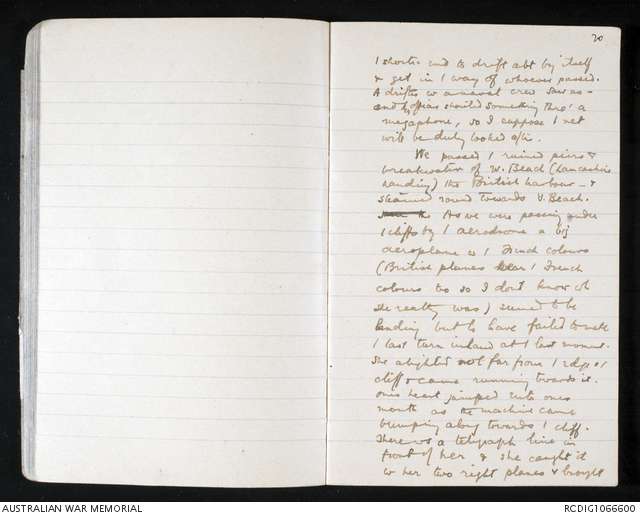 20
1 shorter end to drift abt by itself
& get in 1 way of whoever passed.
A drifter w a naval crew saw us –
and the officer shouted something thro' a
megaphone, so I suppose 1 net
will be duly looked after.
We passed 1 ruined piers &
breakwater of W. Beach (Lancashire
Landing) the British harbour – &
steamed round towards V. Beach.
As we were passing under
1 cliffs by 1 aerodrome a big
aeroplane w 1 French colours
(British planes bear 1 French
colours too so I dont know wh
she really was) seemed to be
landing but to have failed to make
1 last turn inland at 1 last moment.
She alighted not far from 1 edge of 1
cliff & came running towards it.
Ones heart jumped into ones
mouth as the machine came
bumping along towards 1 cliff.
There was a telegraph line in
front of her & she caught it
w her two right planes & brought
AUSTRALIAN WAR MEMORIAL
RCDIG1066600